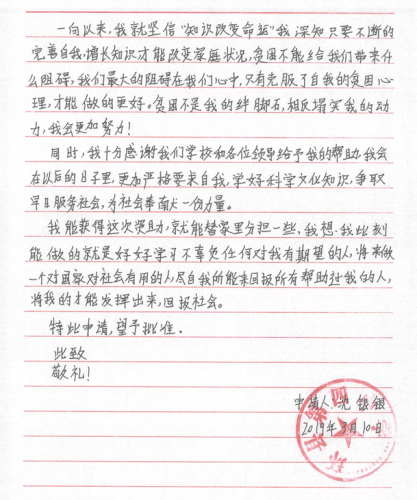 一向以来,我就坚信"知识改变命运"我深知只要不断的
完善自我,增长知识才能改变家庭状况,贫困不能给我们带来什
么阻碍,我们最大的阻碍在我们心中,只有克服了自我的贫困心
理,才能做的更好。贫困不是我的绊脚石,相反塌实我的动
力,我会更加努力!
同时,我十分感谢我们学校和各位领导给予我的帮助,我会
在以后的日子里,更加严格要求自我,学好科学文化知识,争取
早日服务社会,为社会奉献一份力量。
我能获得这次奖助,就能替家里分担一些,我想,我此刻
能做的就是好好学习不辜负任何对我有期望的人,将来做
一个对国家对社会有用的人,尽自我所能来回报所有帮助过我的人,
将我的才能发挥出来,回报社会。
特此申请,望予批准。
此致
敬礼!
申请人:沈银银
2019年3月10日